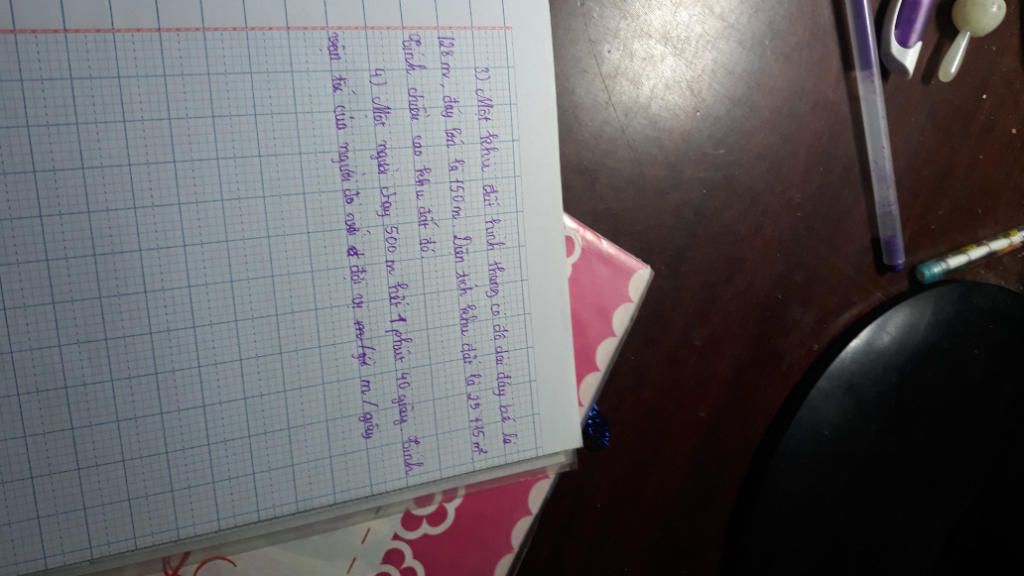 3) Một khu đất hình thang có độ dài đáy bé là
128 m, đáy lớn là 150 m Diện tích khu đất là
Tính chiều cao khu đất đó
4) Một người chạy 500 m hết 1 phút 40 giây Tính
vận tốc của người đó với đơn vị m / giây